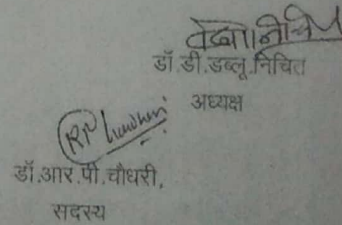 डॉ.डी.डब्लू.निचित
अध्यक्ष
डॉ.आर.पी.चौधरी,
सदस्य